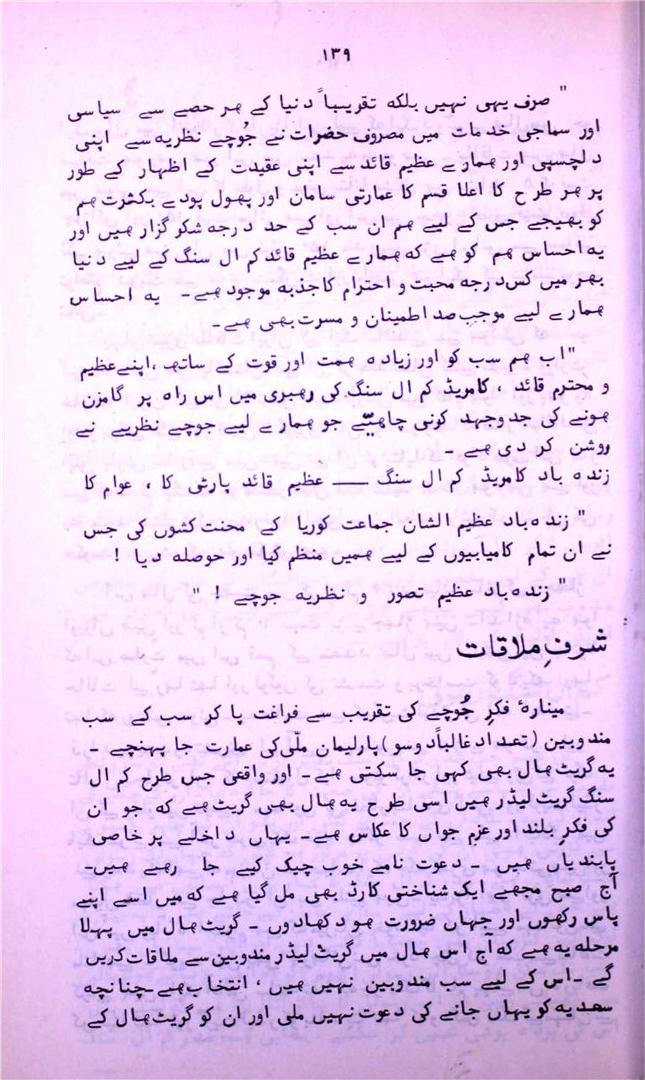 ۱۳۹
" صرف یہی نہیں بلکہ تقریباً دنیا کے ہر حصے سے سیاسی
اور سماجی خدمات میں مصروف حضرات نے جُوچے نظریہ سے اپنی
دلچسپی اور ہمارے عظیم قائد سے اپنی عقیدت کے اظہار کے طور
پر ہر طرح کا اعلا قسم کا عمارتی سامان اور پھول پودے بکثرت ہم
کو بھیجے جس کے لیے ہم ان سب کے حد درجہ شکر گزار ہیں اور
یہ احساس ہم کو ہے کہ ہمارے عظیم قائد کم ال سنگ کے لیے دنیا
بھر میں کس درجہ محبت و احترام کا جذبہ موجود ہے ۔ یہ احساس
ہمارے لیے موجبِ صد اطمینان و مسرت بھی ہے۔
"اب ہم سب کو اور زیادہ ہمت اور قوت کے ساتھ ، اپنے عظیم
و محترم قائد ، کامریڈ کم ال سنگ کی رہبری میں اس راہ پر گامزن
ہونے کی جدوجہد کرنی چاہیے جو ہمارے لیے جوچے نظریے نے
روشن کر دی ہے ۔
زندہ باد کامریڈ کم ال سنگ ــــ عظیم قائد پارٹی کا ، عوام کا
" زندہ باد عظیم الشان جماعت کوریا کے محنت کشوں کی جس
نے ان تمام کامیابیوں کے لیے ہمیں منظم کیا اور حوصلہ دیا !
" زندہ باد عظیم تصور و نظریہ جوچے ! "
شرفِ ملاقات
مینارۂ فکرِ جُوچے کی تقریب سے فراغت پا کر سب کے سب
مندوبین (تعداد غالباً دو سو) پارلیمان ملّی کی عمارت جا پہنچے ۔
یہ گریٹ ہال بھی کہی جا سکتی ہے۔ اور واقعی جس طرح کم ال
سنگ گریٹ لیڈر ہیں اسی طرح یہ ہال بھی گریٹ ہے کہ جو ان
کی فکرِ بلند اور عزمِ جواں کا عکاس ہے۔ یہاں داخلے پر خاصی
پابندیاں ہیں ۔ دعوت نامے خوب چیک کیے جا رہے ہیں۔
آج صبح مجھے ایک شناختی کارڈ بھی مل گیا ہے کہ میں اسے اپنے
پاس رکھوں اور جہاں ضرورت ہو دکھا دوں ۔ گریٹ ہال میں پہلا
مرحلہ یہ ہے کہ آج اس ہال میں گریٹ لیڈر مندوبین سے ملاقات کریں
گے ۔ اس کے لیے سب مندوبین نہیں ہیں ، انتخاب ہے ۔ چنانچہ
سعدیہ کو یہاں جانے کی دعوت نہیں ملی اور ان کو گریٹ ہال کے